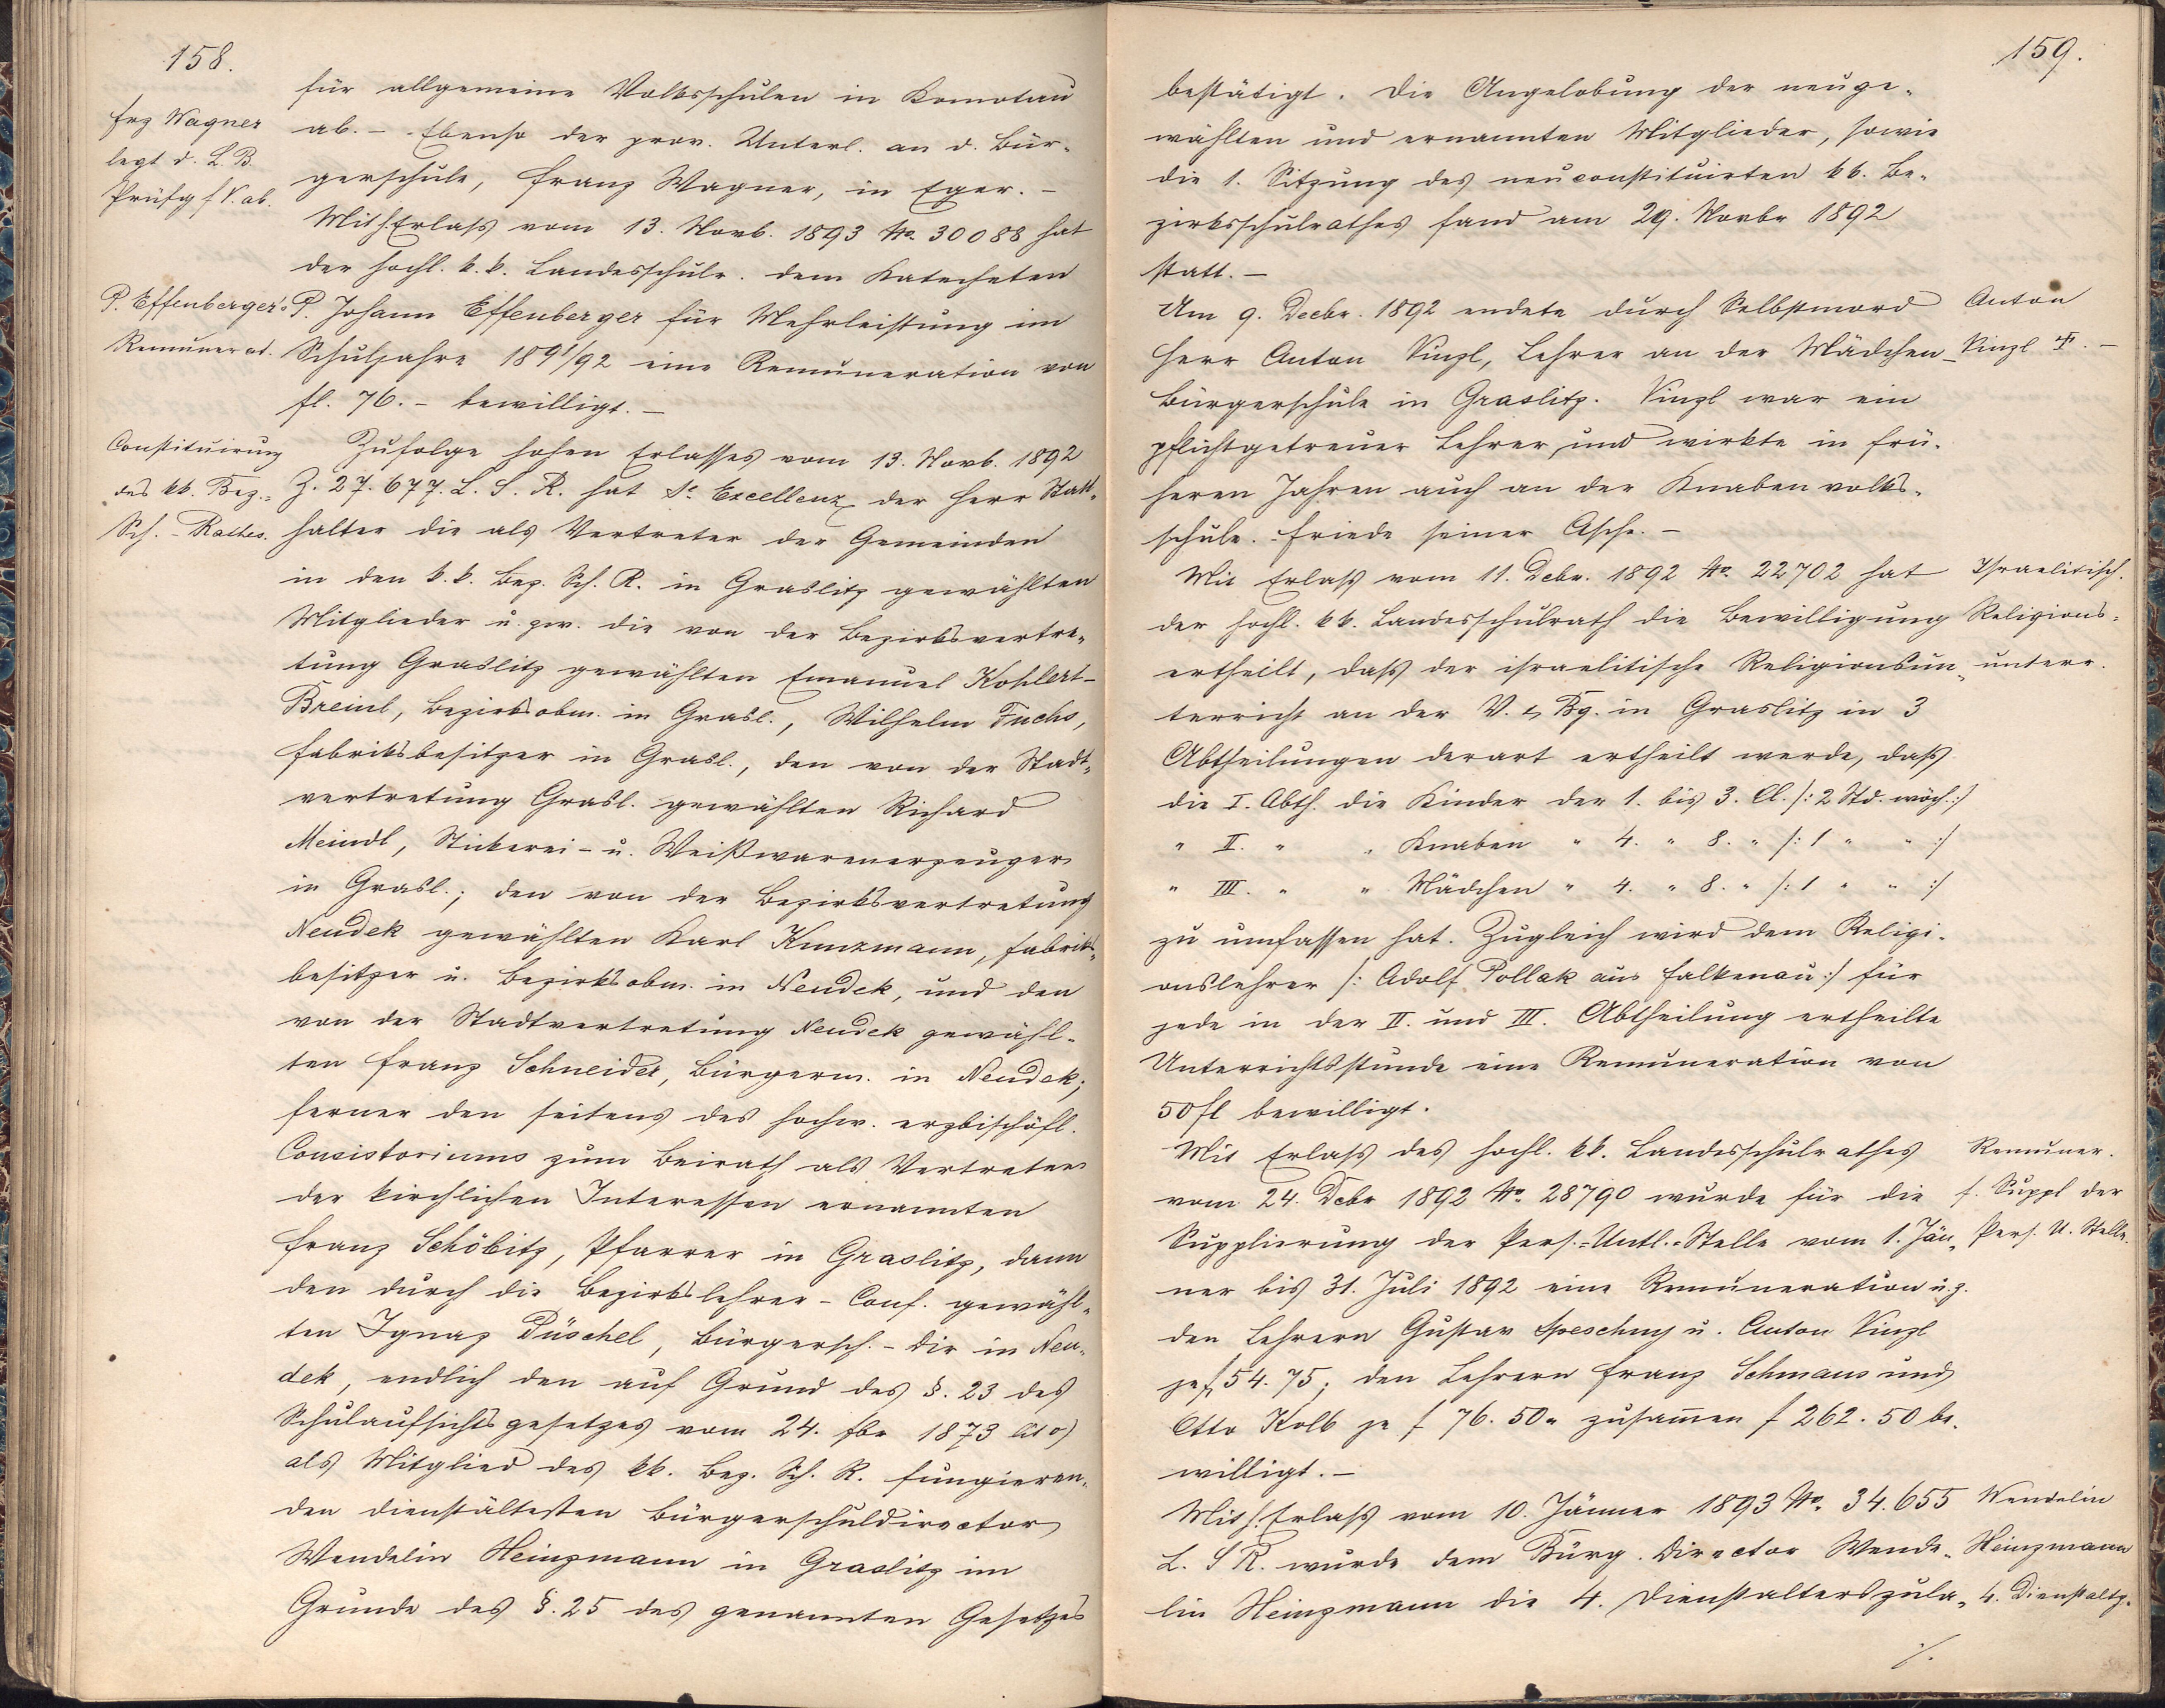 158.
für allgemeine Volksschulen in Komotau
Frz Wagner
legt d. L. B.
Prüfg f V. ab.
ab. – Ebenso der prov. Unterl. an d. Bür-
gerschule, Franz Wagner, in Eger. –
Mit h. Erlaß vom 13. Novb. 1893 No. 30088 hat
der hochl. k. k. Landesschulr. dem Katecheten
P. Effenberger's
Remunerat.
P. Johann Effenberger für Mehrleistung im
Schuljahre 1891/92 eine Remuneration von
fl. 76. – bewilligt. –
Constituirung
des kk. Bez.-
Sch. - Rathes.
Zufolge hohen Erlasses vom 13. Novb. 1892
Z. 27.677. L. S. R. hat Se Excellenz der Herr Statt-
halter die als Vertreter der Gemeinden
in den k. k. Bez. Sch. R. in Graslitz gewählten
Mitglieder u. zw. die von der Bezirksvertre-
tung Graslitz gewählten Emanuel Kohlert-
Breinl, Bezirksobm. in Grasl., Wilhelm Fuchs,
Fabriksbesitzer in Grasl., den von der Stadt-
vertretung Grasl. gewählten Richard
Meindl, Stickerei- u. Weißwarenerzeuger
in Grasl.; den von der Bezirksvertretung
Neudek gewählten Karl Kunzmann, Fabriks-
besitzer u. Bezirksobm. in Neudek, und den
von der Stadtvertretung Neudek gewähl-
ten Franz Schneider, Bürgerm. in Neudek;
ferner den seitens des hochw. erzbischöfl.
Consistoriums zum Beirath als Vertreter
der kirchlichen Interessen ernannten
Franz Schöbitz, Pfarrer in Graslitz, dann
den durch die Bezirkslehrer-Conf. gewähl-
ten Ignaz Püschel, Bürgersch. - Dir in Neu-
dek, endlich den auf Grund des §. 23 des
Schulaufsichtsgesetzes vom 24. Fbr 1873
als Mitglied des kk. Bez. Sch. R. fungieren-
den dienstältesten Bürgerschuldirector
Wendelin Heinzmann in Graslitz im
Grunde des §. 25 des genannten Gesetzes
159.
bestätigt. Die Angelobung der neuge-
wählten und ernannten Mitglieder, sowie
die 1. Sitzung des neuconstituirten kk. Be-
zirksschulrathes fand am 29. Novbr 1892
statt. –
Am 9. Decbr. 1892 endete durch Selbstmord
Herr Anton Vinzl, Lehrer an der Mädchen-
Anton
Vinzl †. –
Bürgerschule in Graslitz. Vinzl war ein
pflichtgetreuer Lehrer und wirkte in frü-
heren Jahren auch an der Knabenvolks-
schule. Friede seiner Asche. –
Mit Erlaß vom 11. Debr. 1892 No. 22702 hat
der hochl. kk. Landesschulrath die Bewilligung
ertheilt, daß der israelitische Religionsun-
Israelitisch.
Religions-
unterr.
terricht an der V. & Bg. in Graslitz in 3
Abtheilungen derart ertheilt werde, daß
die I. Abth. die Kinder der 1. bis 3. Cl. /: 2 Std. wöch. :/
" II. " " Knaben " 4. " 8. " /: 1 " " :/
" III. " " Mädchen " 4. " 8. " /: 1 " " :/
zu umfassen hat. Zugleich wird dem Religi-
onslehrer /: Adolf Pollak aus Falkenau :/ für
jede in der II. und III. Abtheilung ertheilte
Unterrichtsstunde eine Remuneration von
50 fl bewilligt.
Mit Erlaß des hochl. kk. Landesschulrathes
vom 24. Debr 1892 No. 28790 wurde für die
Supplierung der Pers.-Untl.-Stelle vom 1. Jän-
Remuner.
f. Suppl der
Pers. U. Stelle.
ner bis 31. Juli 1892 eine Remuneration u. z.
den Lehrern Gustav Speschny u. Anton Vinzl
je f 54. 75; den Lehrern Franz Schmaus und
Otto Kolb je f 76. 50 " zusam̄en f 262. 50 be-
willigt. –
Mit h. Erlaß vom 10. Jänner 1893 No. 34.655
L. S R. wurde dem Bürg. Director Wende-
lin Heinzmann die 4. Dienstalterszula-
Wendelin
Heinzmann
4. Dienstaltz.
./.